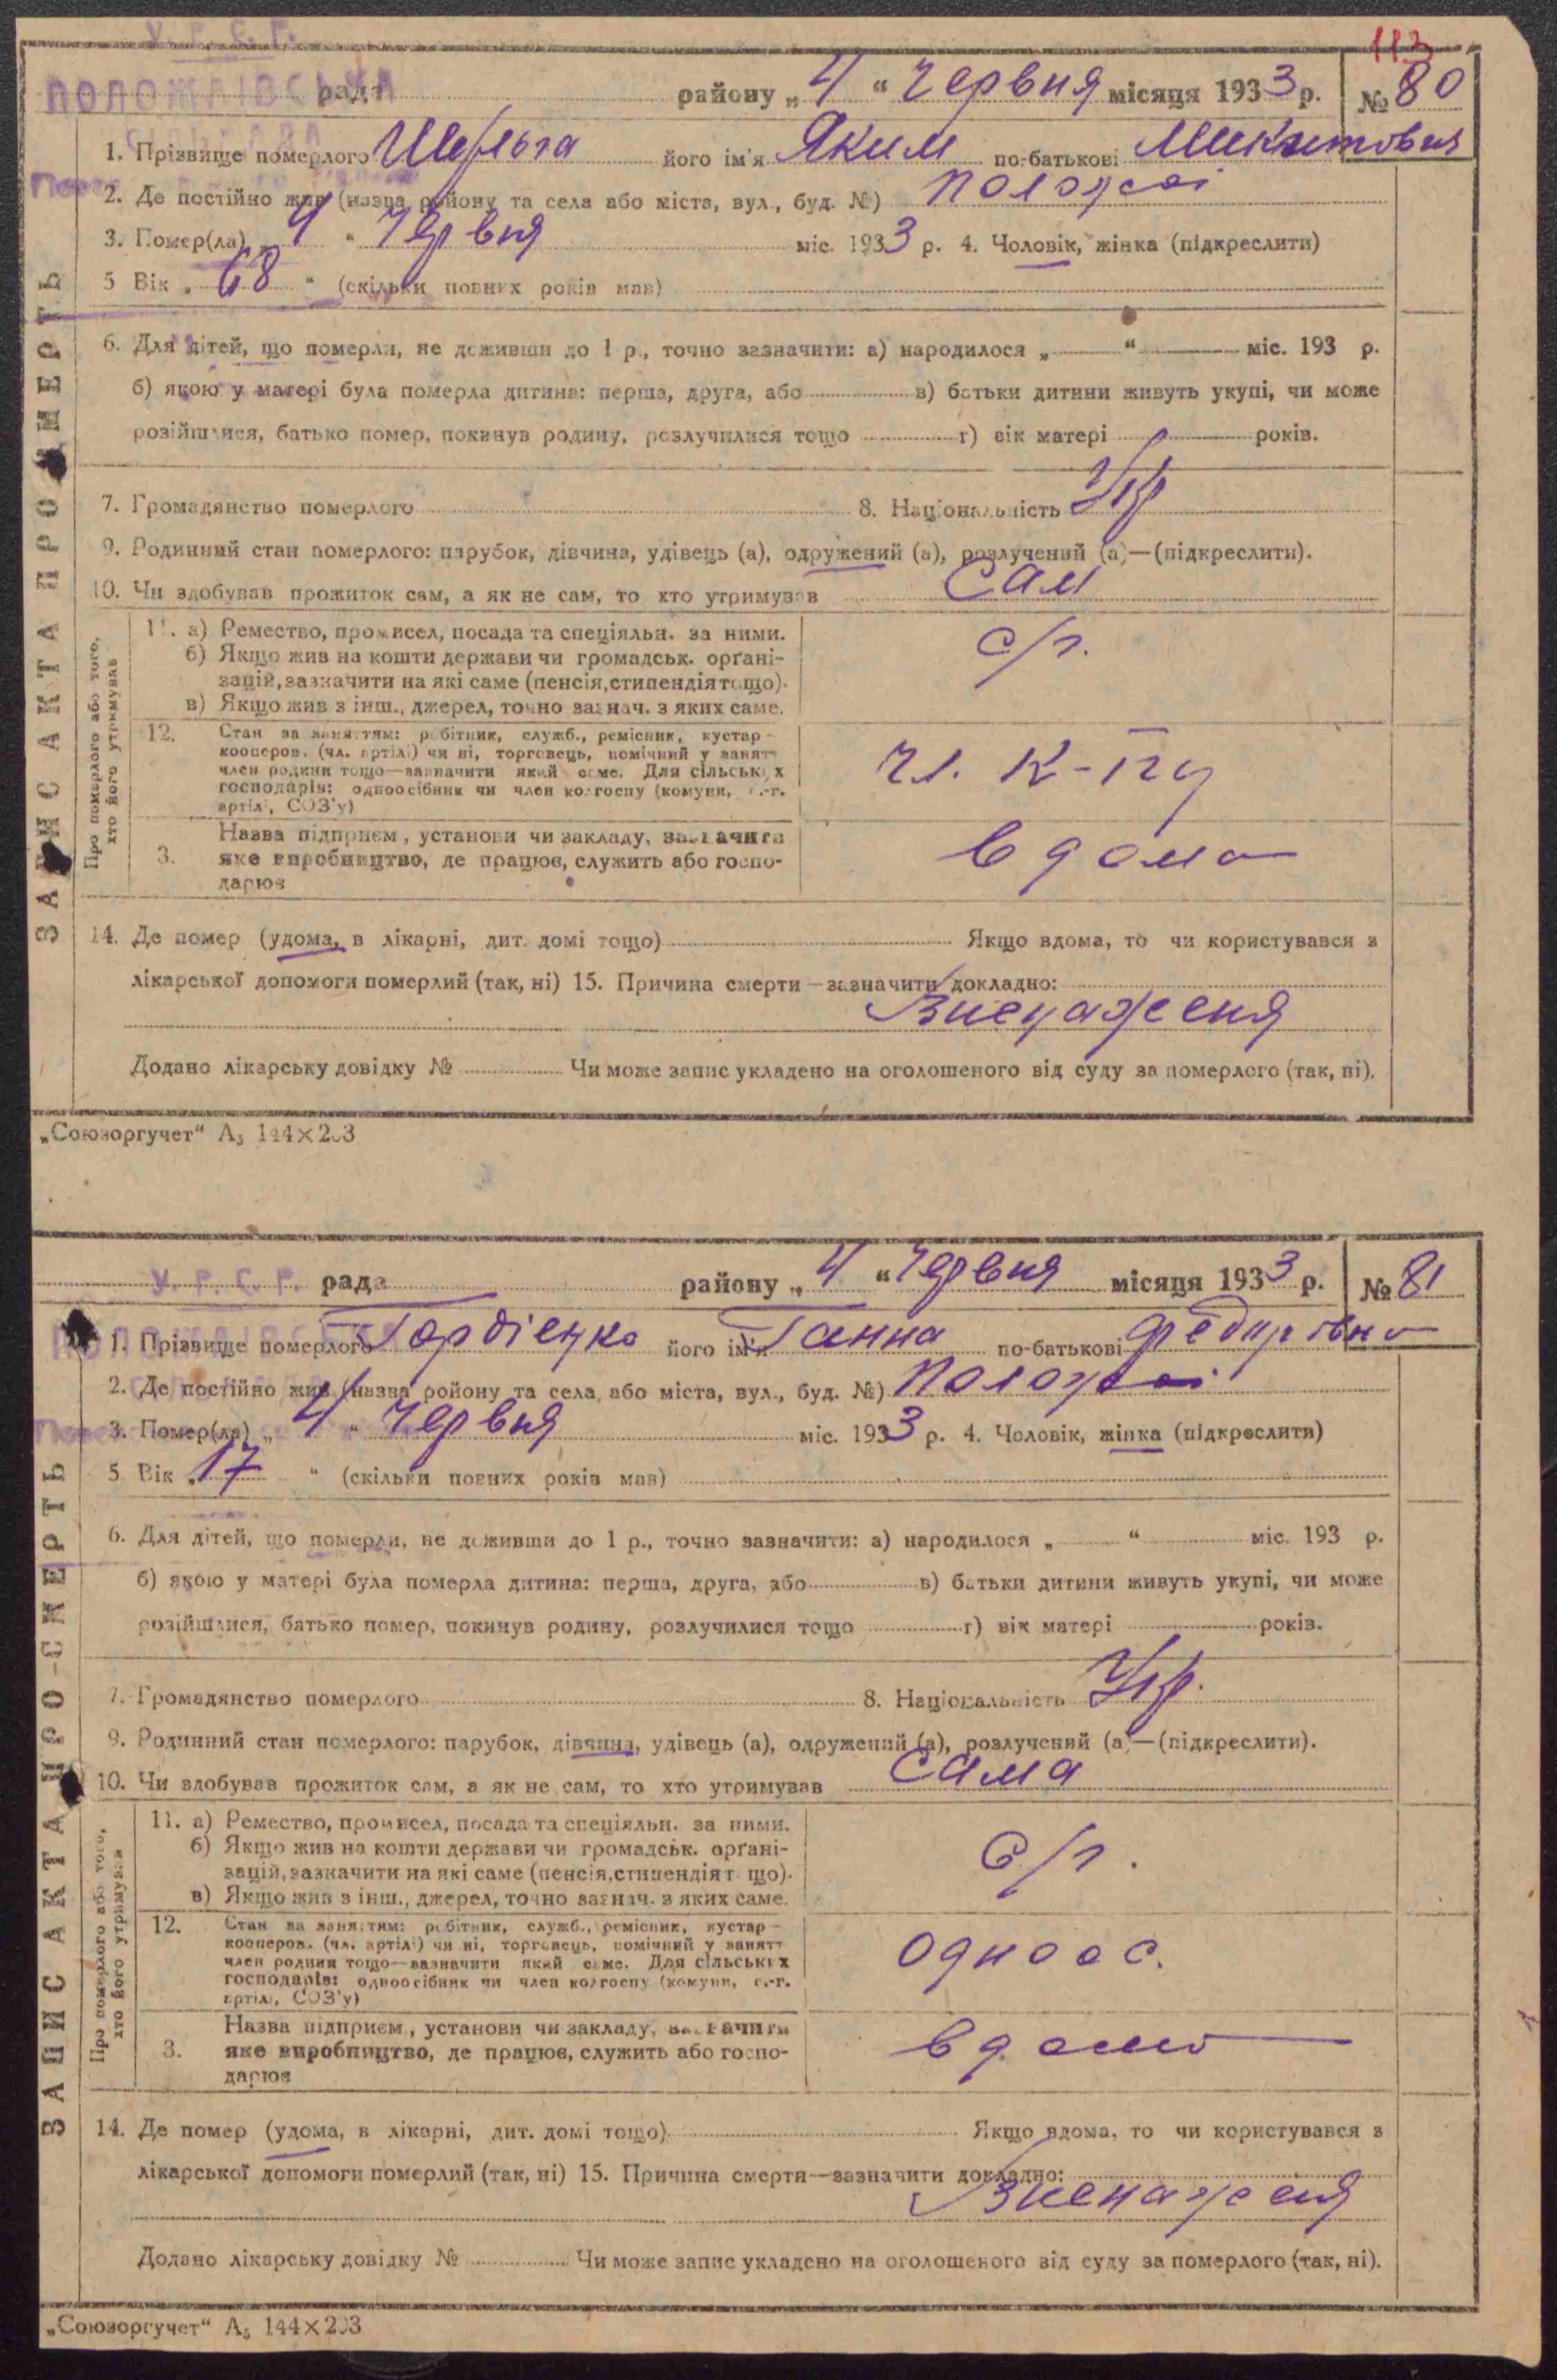 113
У. Р. С. Р.
ПОЛОЖАЇВСЬКА рада району „4“ Червня місяця 1933 р. № 80
1. Прізвище померлого його ім'я Яким по-батькові Микитович
2. Де постійно жив (назва району та села або міста, вул., буд. №) Положаї
3. Помер(ла) „4“ Червня міс. 1933 р. 4. Чоловік, жінка (підкреслити)
5 Вік „68“ (скільки повних років мав)
6. Для дітей, що померли, не доживши до 1 р., точно зазначити: а) народилося „ “ міс. 193 р.
б) якою у матері була померла дитина: перша, друга, або в) батьки дитини живуть укупі, чи може
розійшлися, батько помер, покинув родину, розлучилися тощо г) вік матері років.
7. Громадянство померлого 8. Національність Укр
9. Родинний стан померлого: парубок, дівчина, удівець (а), одружений (а), розлучений (а)—(підкреслити).
10. Чи здобував прожиток сам, а як не сам, то хто утримував Сам
Про померлого або того, хто його утримував
11. а) Ремество, промисел, посада та спеціяльн. за ними. с/г.
б) Якщо жив на кошти держави чи громадськ. орґані-
зацій, зазначити на які саме (пенсія, стипендія тощо).
в) Якщо жив з інш., джерел, точно зазнач. з яких саме.
12. Стан за заняттям: робітник, служб., ремісник, кустар —
кооперов. (чл. артілі) чи ні, торговець, помічний у занятт
член родини тощо—зазначити який саме. Для сільських
господарів: одноосібник чи член колгоспу (комуни, с.-г.
артілі, СОЗ'у)
чл. к-гу
3. Назва підприєм., установи чи закладу, зазначити
яке виробництво, де працюв, служить або госпо-
дарюв
вдома
14. Де помер (удома, в лікарні, дит. домі тощо) Якщо вдома, то чи користувався з
лікарської допомоги померлий (так, ні) 15. Причина смерти—зазначити докладно:
Виснаженя
Додано лікарську довідку № Чи може запис укладено на оголошеного від суду за померлого (так, ні).
ЗАПИС АКТА ПРО СМЕРТЬ
„Союзоргучет“ А₅ 144×203
У. Р. С. Р. рада району „4“ Червня місяця 1933 р. № 81
1. Прізвище померлого Гордієнко його ім'я Ганна по-батькові Федирівна
2. Де постійно жив (назва району та села, або міста, вул., буд. №) Положаї
3. Помер(ла) „4“ Червня міс. 1933 р. 4. Чоловік, жінка (підкреслити)
5 Вік „17“ (скільки повних років мав)
6. Для дітей, що померли, не доживши до 1 р., точно зазначити: а) народилося „ “ міс. 193 р.
б) якою у матері була померла дитина: перша, друга, або в) батьки дитини живуть укупі, чи може
розійшлися, батько помер, покинув родину, розлучилися тощо г) вік матері років.
7. Громадянство померлого 8. Національність Укр.
9. Родинний стан померлого: парубок, дівчина, удівець (а), одружений (а), розлучений (а)—(підкреслити).
10. Чи здобував прожиток сам, а як не сам, то хто утримував Сама
Про померлого або того, хто його утримував
11. а) Ремество, промисел, посада та спеціяльн. за ними. с/г.
б) Якщо жив на кошти держави чи громадськ. орґані-
зацій, зазначити на які саме (пенсія, стипендія тощо).
в) Якщо жив з інш., джерел, точно зазнач. з яких саме.
12. Стан за заняттям: робітник, служб., ремісник, кустар —
кооперов. (чл. артілі) чи ні, торговець, помічний у занятт
член родини тощо—зазначити який саме. Для сільських
господарів: одноосібник чи член колгоспу (комуни, с.-г.
артілі, СОЗ'у)
одноос.
3. Назва підприєм., установи чи закладу, зазначити
яке виробництво, де працюв, служить або госпо-
дарюв
вдома
14. Де помер (удома, в лікарні, дит. домі тощо) Якщо вдома, то чи користувався з
лікарської допомоги померлий (так, ні) 15. Причина смерти—зазначити докладно:
Виснаженя
Додано лікарську довідку № Чи може запис укладено на оголошеного від суду за померлого (так, ні).
ЗАПИС АКТА ПРО СМЕРТЬ
„Союзоргучет“ А₅ 144×203